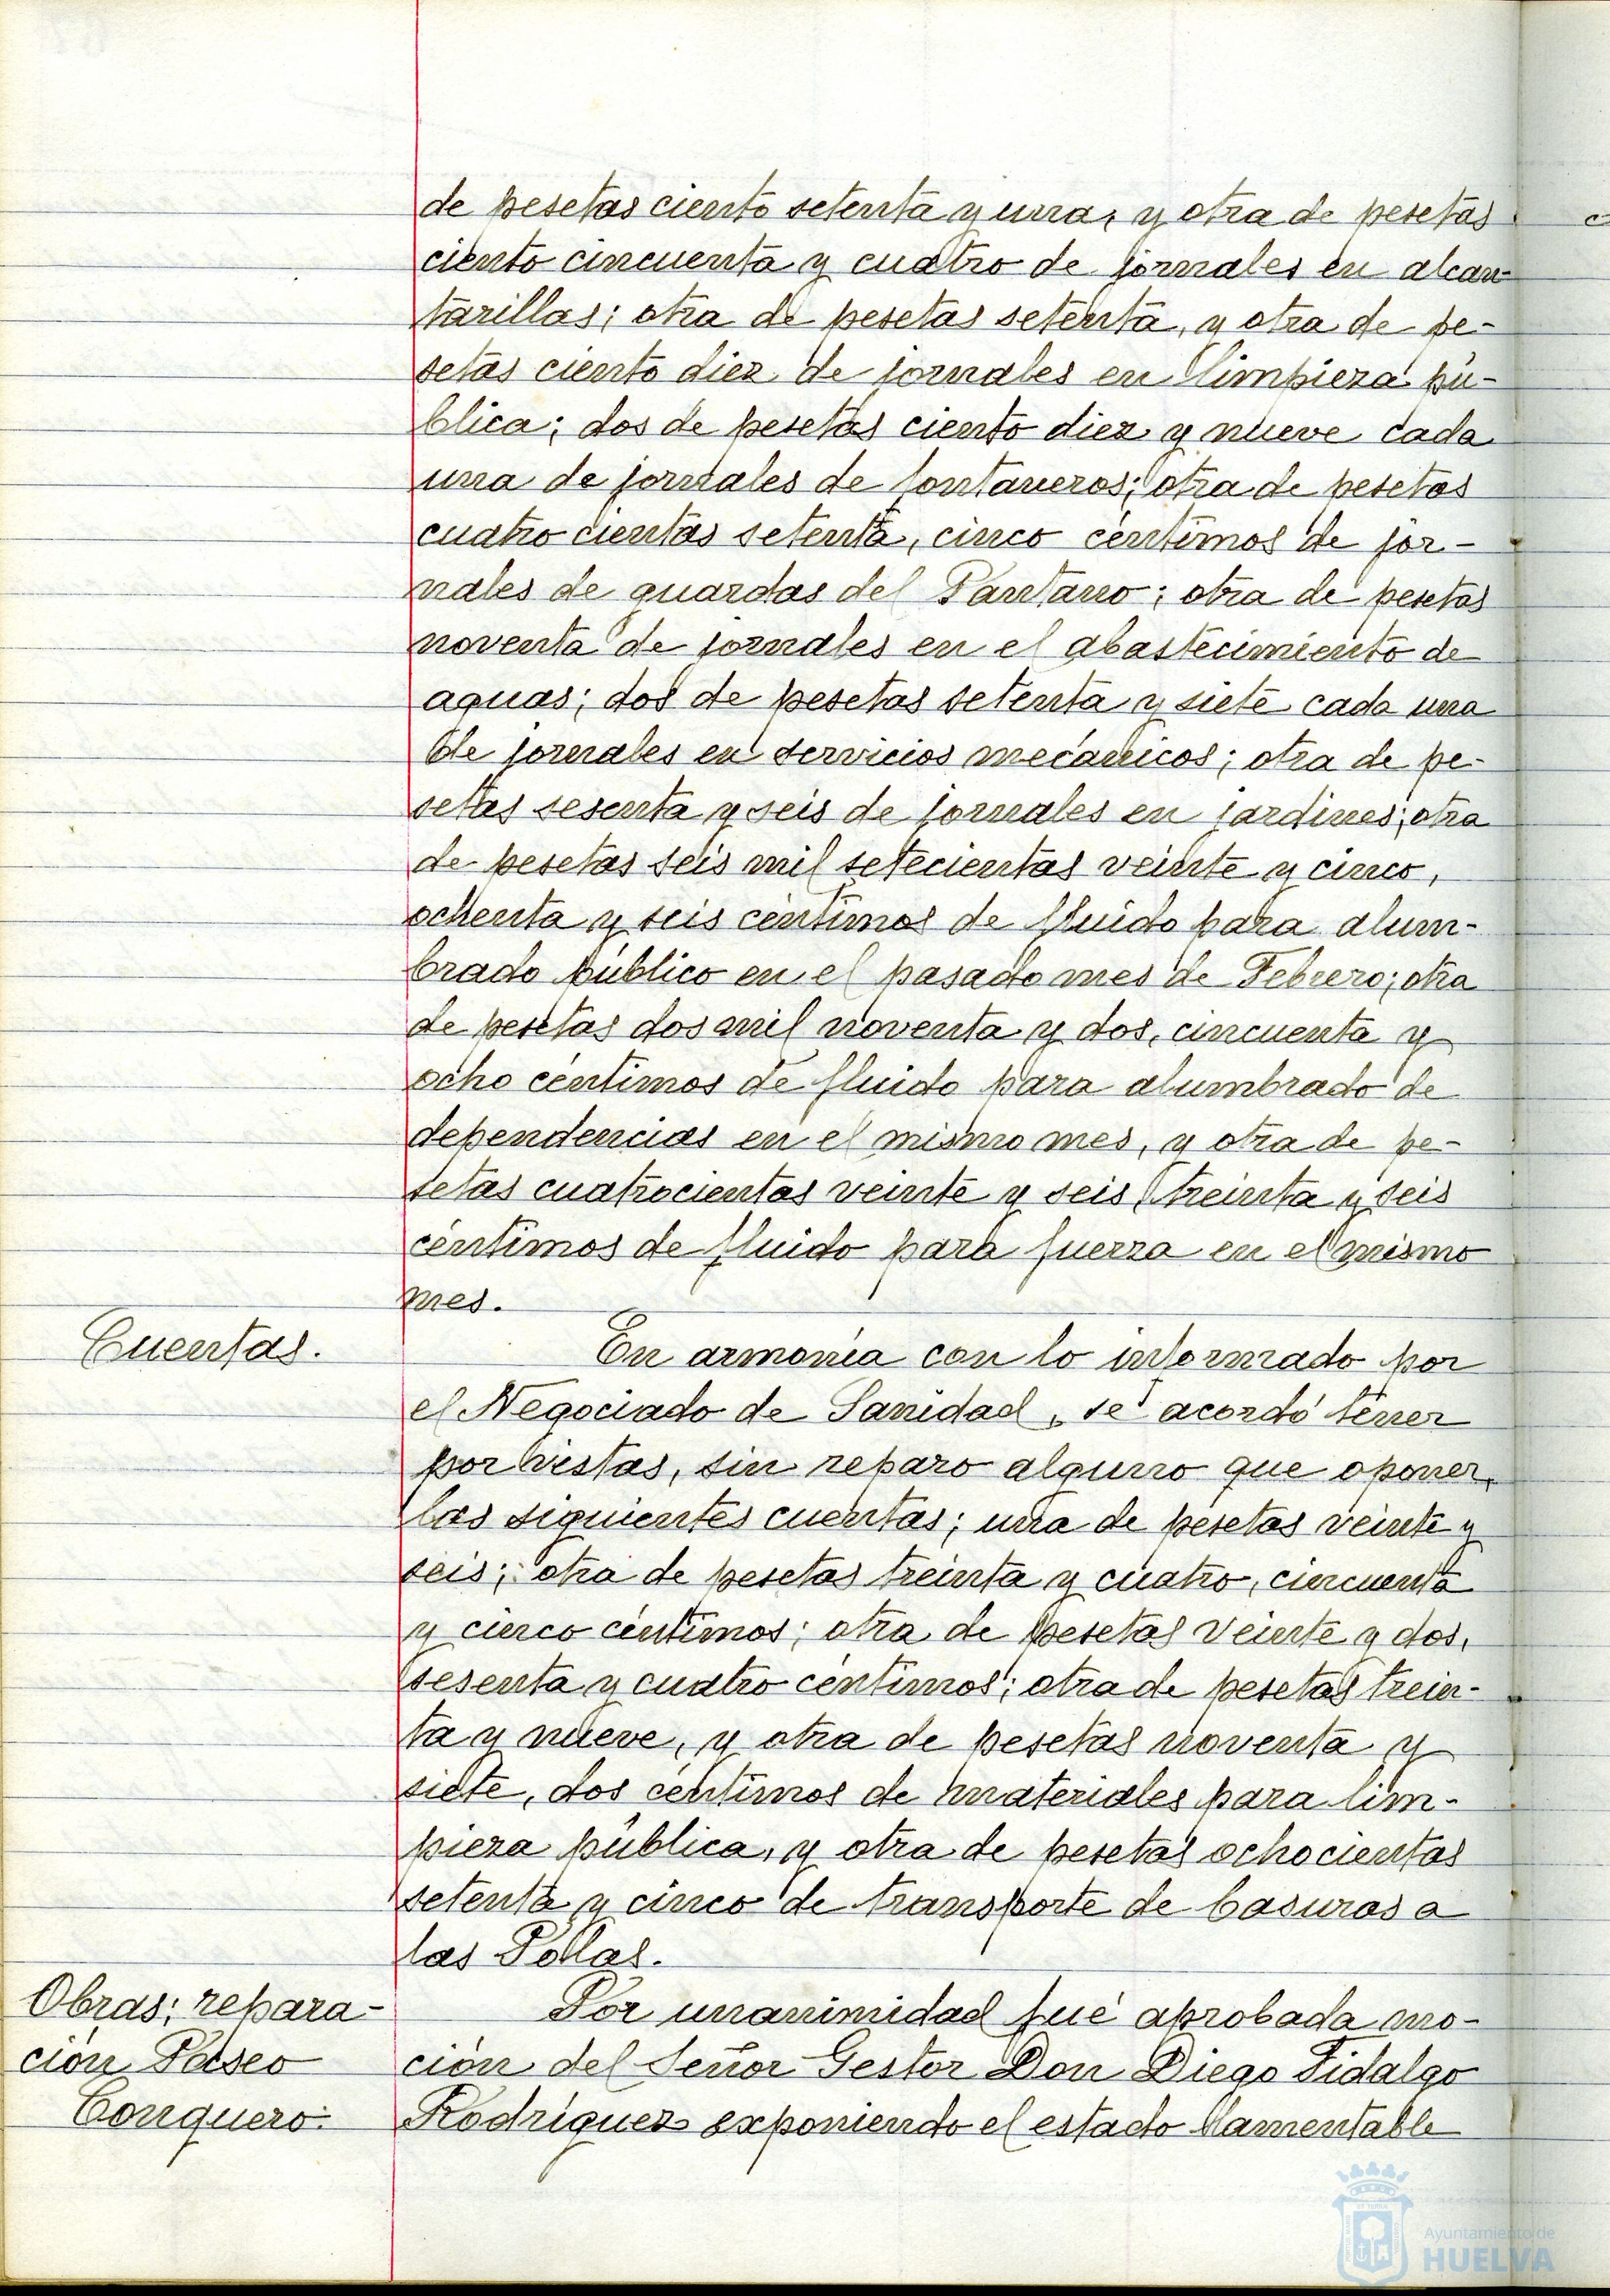 de pesetas ciento setenta y una, y otra de pesetas
ciento cincuenta y cuatro de jornales en alcan-
tarillas; otra de pesetas setenta, y otra de pe-
setas ciento diez de jornales en limpieza pú-
blica; dos de pesetas ciento diez y nueve cada
una de jornales de fontaneros; otra de pesetas
cuatrocientas setenta, cinco céntimos de jor-
nales de guardas del Pantano; otra de pesetas
noventa de jornales en el abastecimiento de
aguas; dos de pesetas setenta y siete cada una
de jornales en servicios mecánicos; otra de pe-
setas sesenta y seis de jornales en jardines; otra
de pesetas seis mil setecientas veinte y cinco,
ochenta y seis céntimos de fluido para alum-
brado público en el pasado mes de Febrero; otra
de pesetas dos mil noventa y dos, cincuenta y
ocho céntimos de fluido para alumbrado de
dependencias en el mismo mes, y otra de pe-
setas cuatrocientas veinte y seis, treinta y seis
céntimos de fluido para fuerza en el mismo
mes.
Cuentas.
En armonía con lo informado por
el Negociado de Sanidad, se acordó tener
por vistas, sin reparo alguno que oponer,
las siguientes cuentas; una de pesetas veinte y
seis; otra de pesetas treinta y cuatro, cincuenta
y cinco céntimos; otra de pesetas veinte y dos,
sesenta y cuatro céntimos; otra de pesetas trein-
ta y nueve, y otra de pesetas noventa y
siete, dos céntimos de materiales para lim-
pieza pública, y otra de pesetas ochocientas
setenta y cinco de transporte de basuras a
las
Obras; repara-
ción Paseo
Conquero.
Por unanimidad fué aprobada mo-
ción del Señor Gestor Don Diego Fidalgo
Rodríguez exponiendo el estado lamentable
Ayuntamiento de
HUELVA